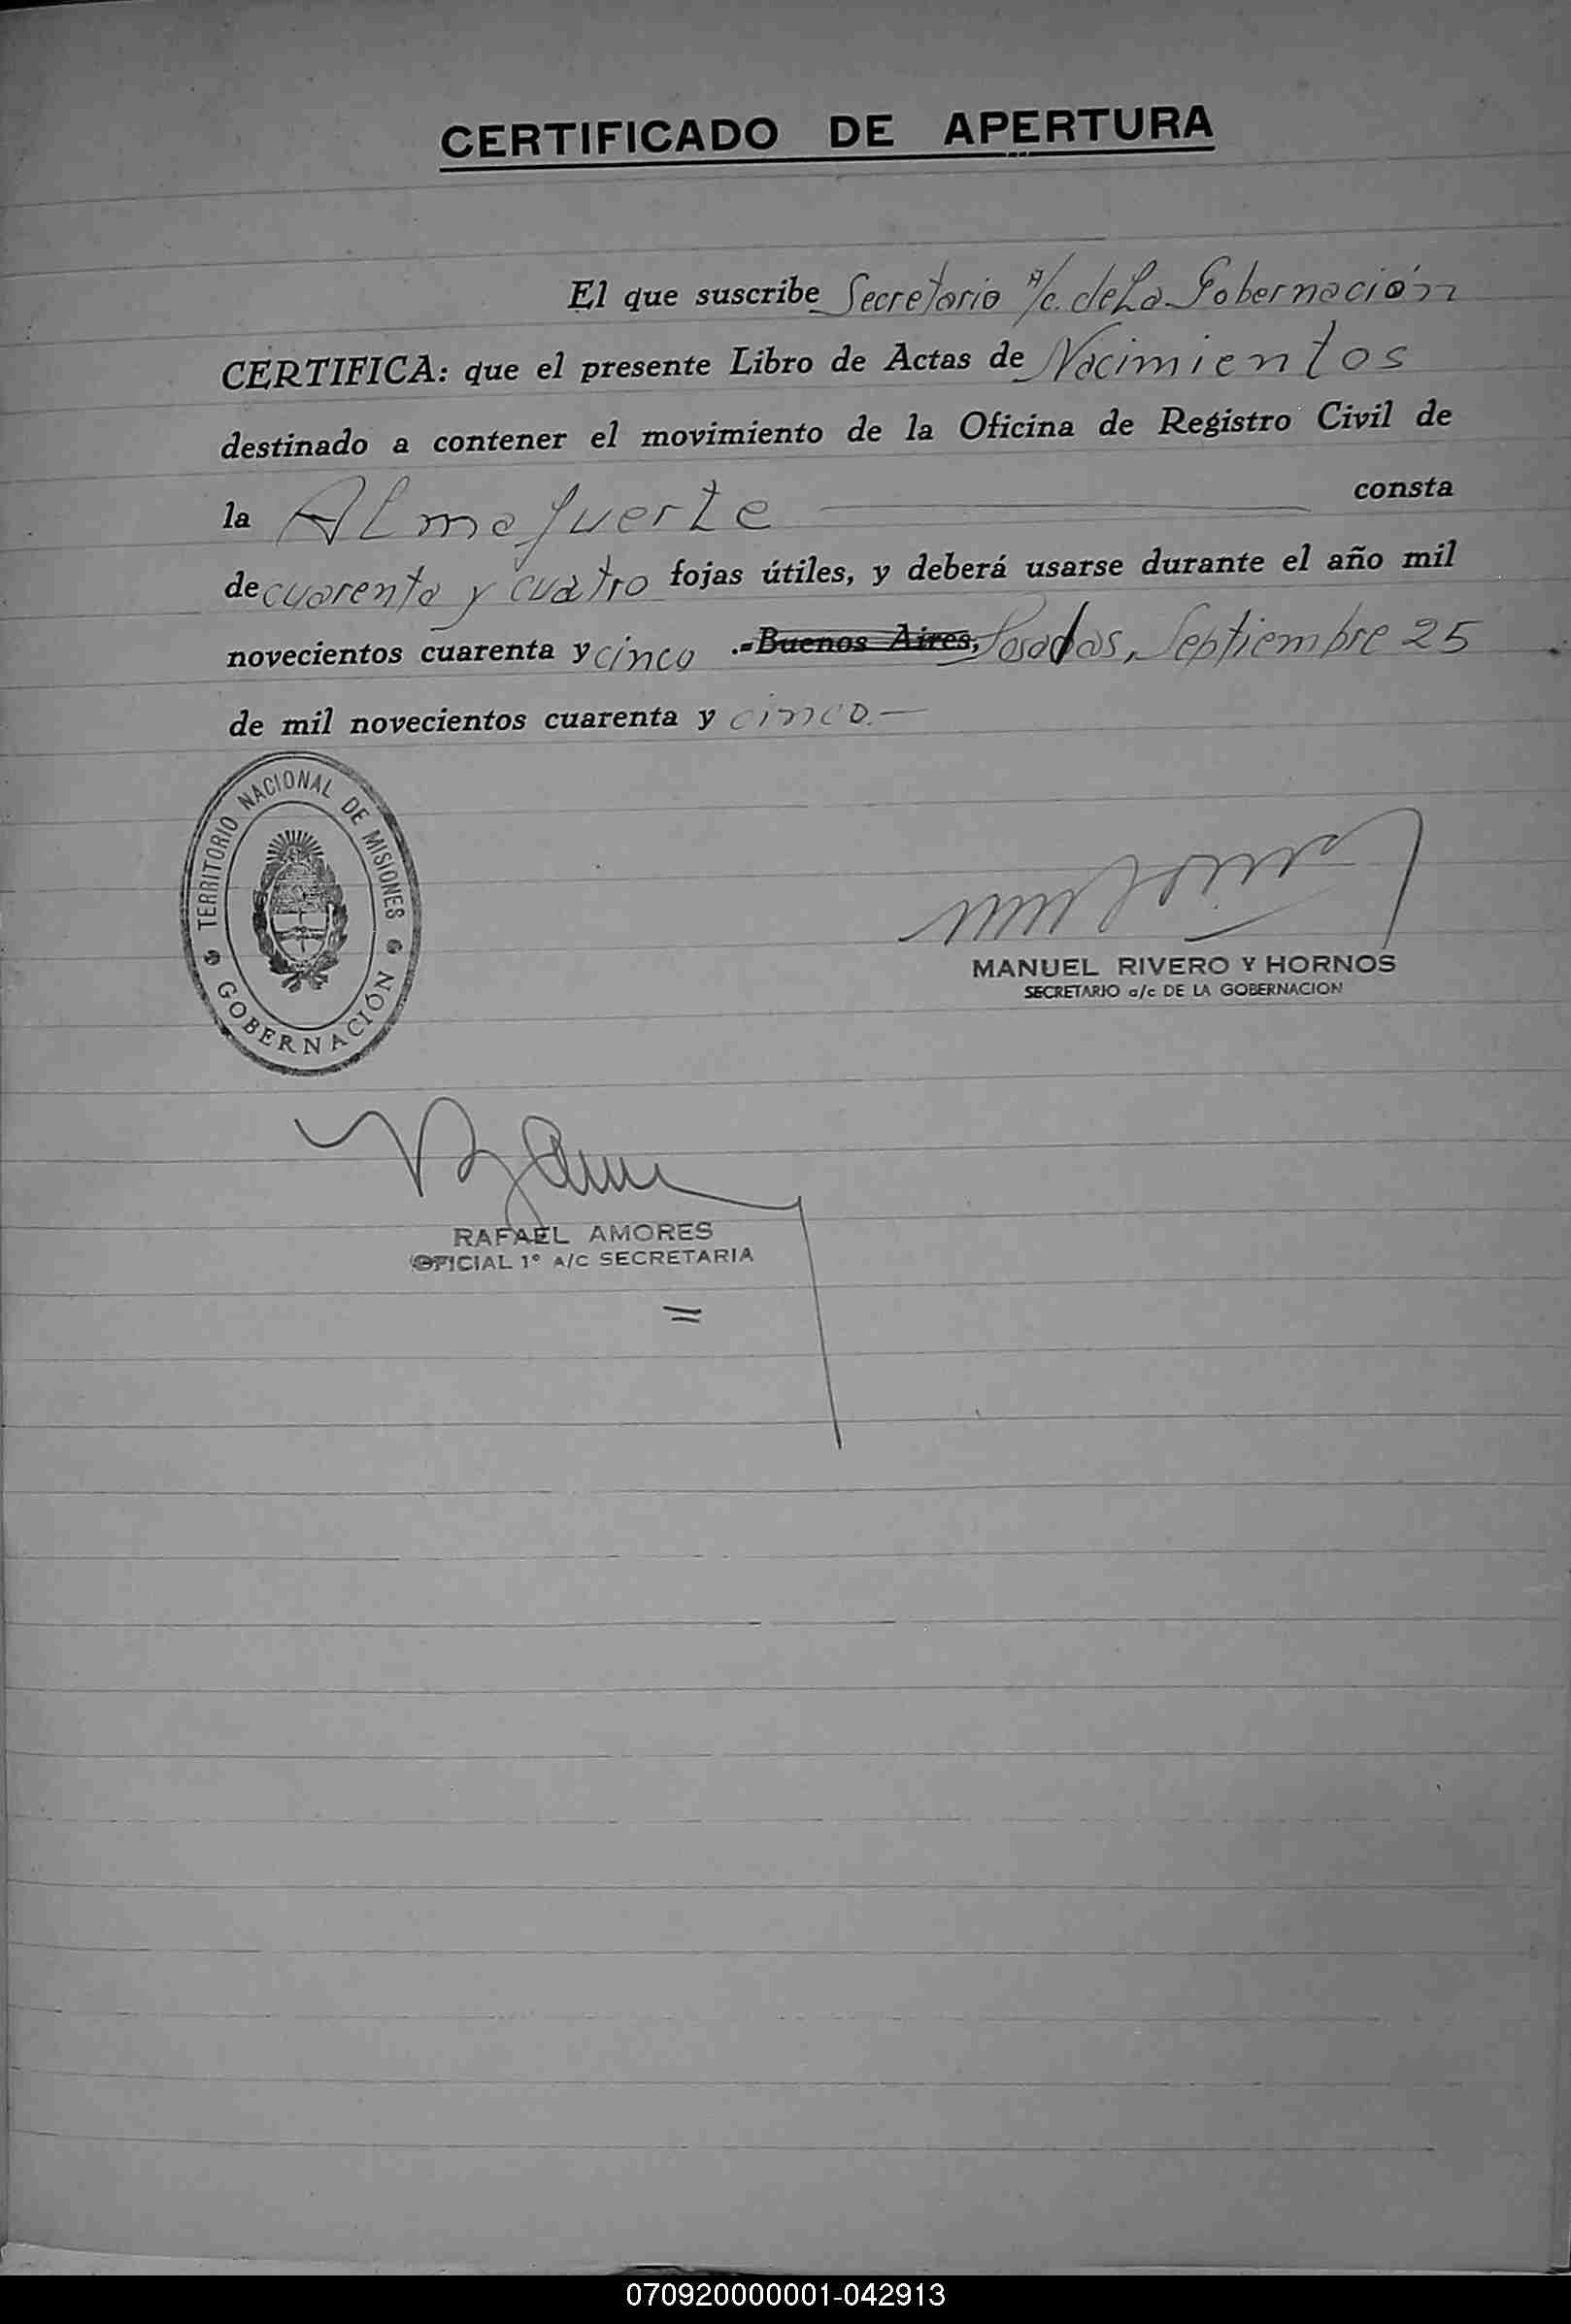 CERTIFICADO DE APERTURA
El que suscribe Secretario a/c. de La Gobernación
CERTIFICA: que el presente Libro de Actas de Nacimientos
destinado a contener el movimiento de la Oficina de Registro Civil de
la Almafuerte consta
de cuarenta y cuatro fojas útiles, y deberá usarse durante el año mil
novecientos cuarenta y cinco .-Buenos Aires, Posadas, Septiembre 25
de mil novecientos cuarenta y cinco.—
TERRITORIO NACIONAL DE MISIONES
GOBERNACIÓN
MANUEL RIVERO Y HORNOS
SECRETARIO a/c DE LA GOBERNACION
RAFAEL AMORES
OFICIAL 1° A/C SECRETARIA
070920000001-042913